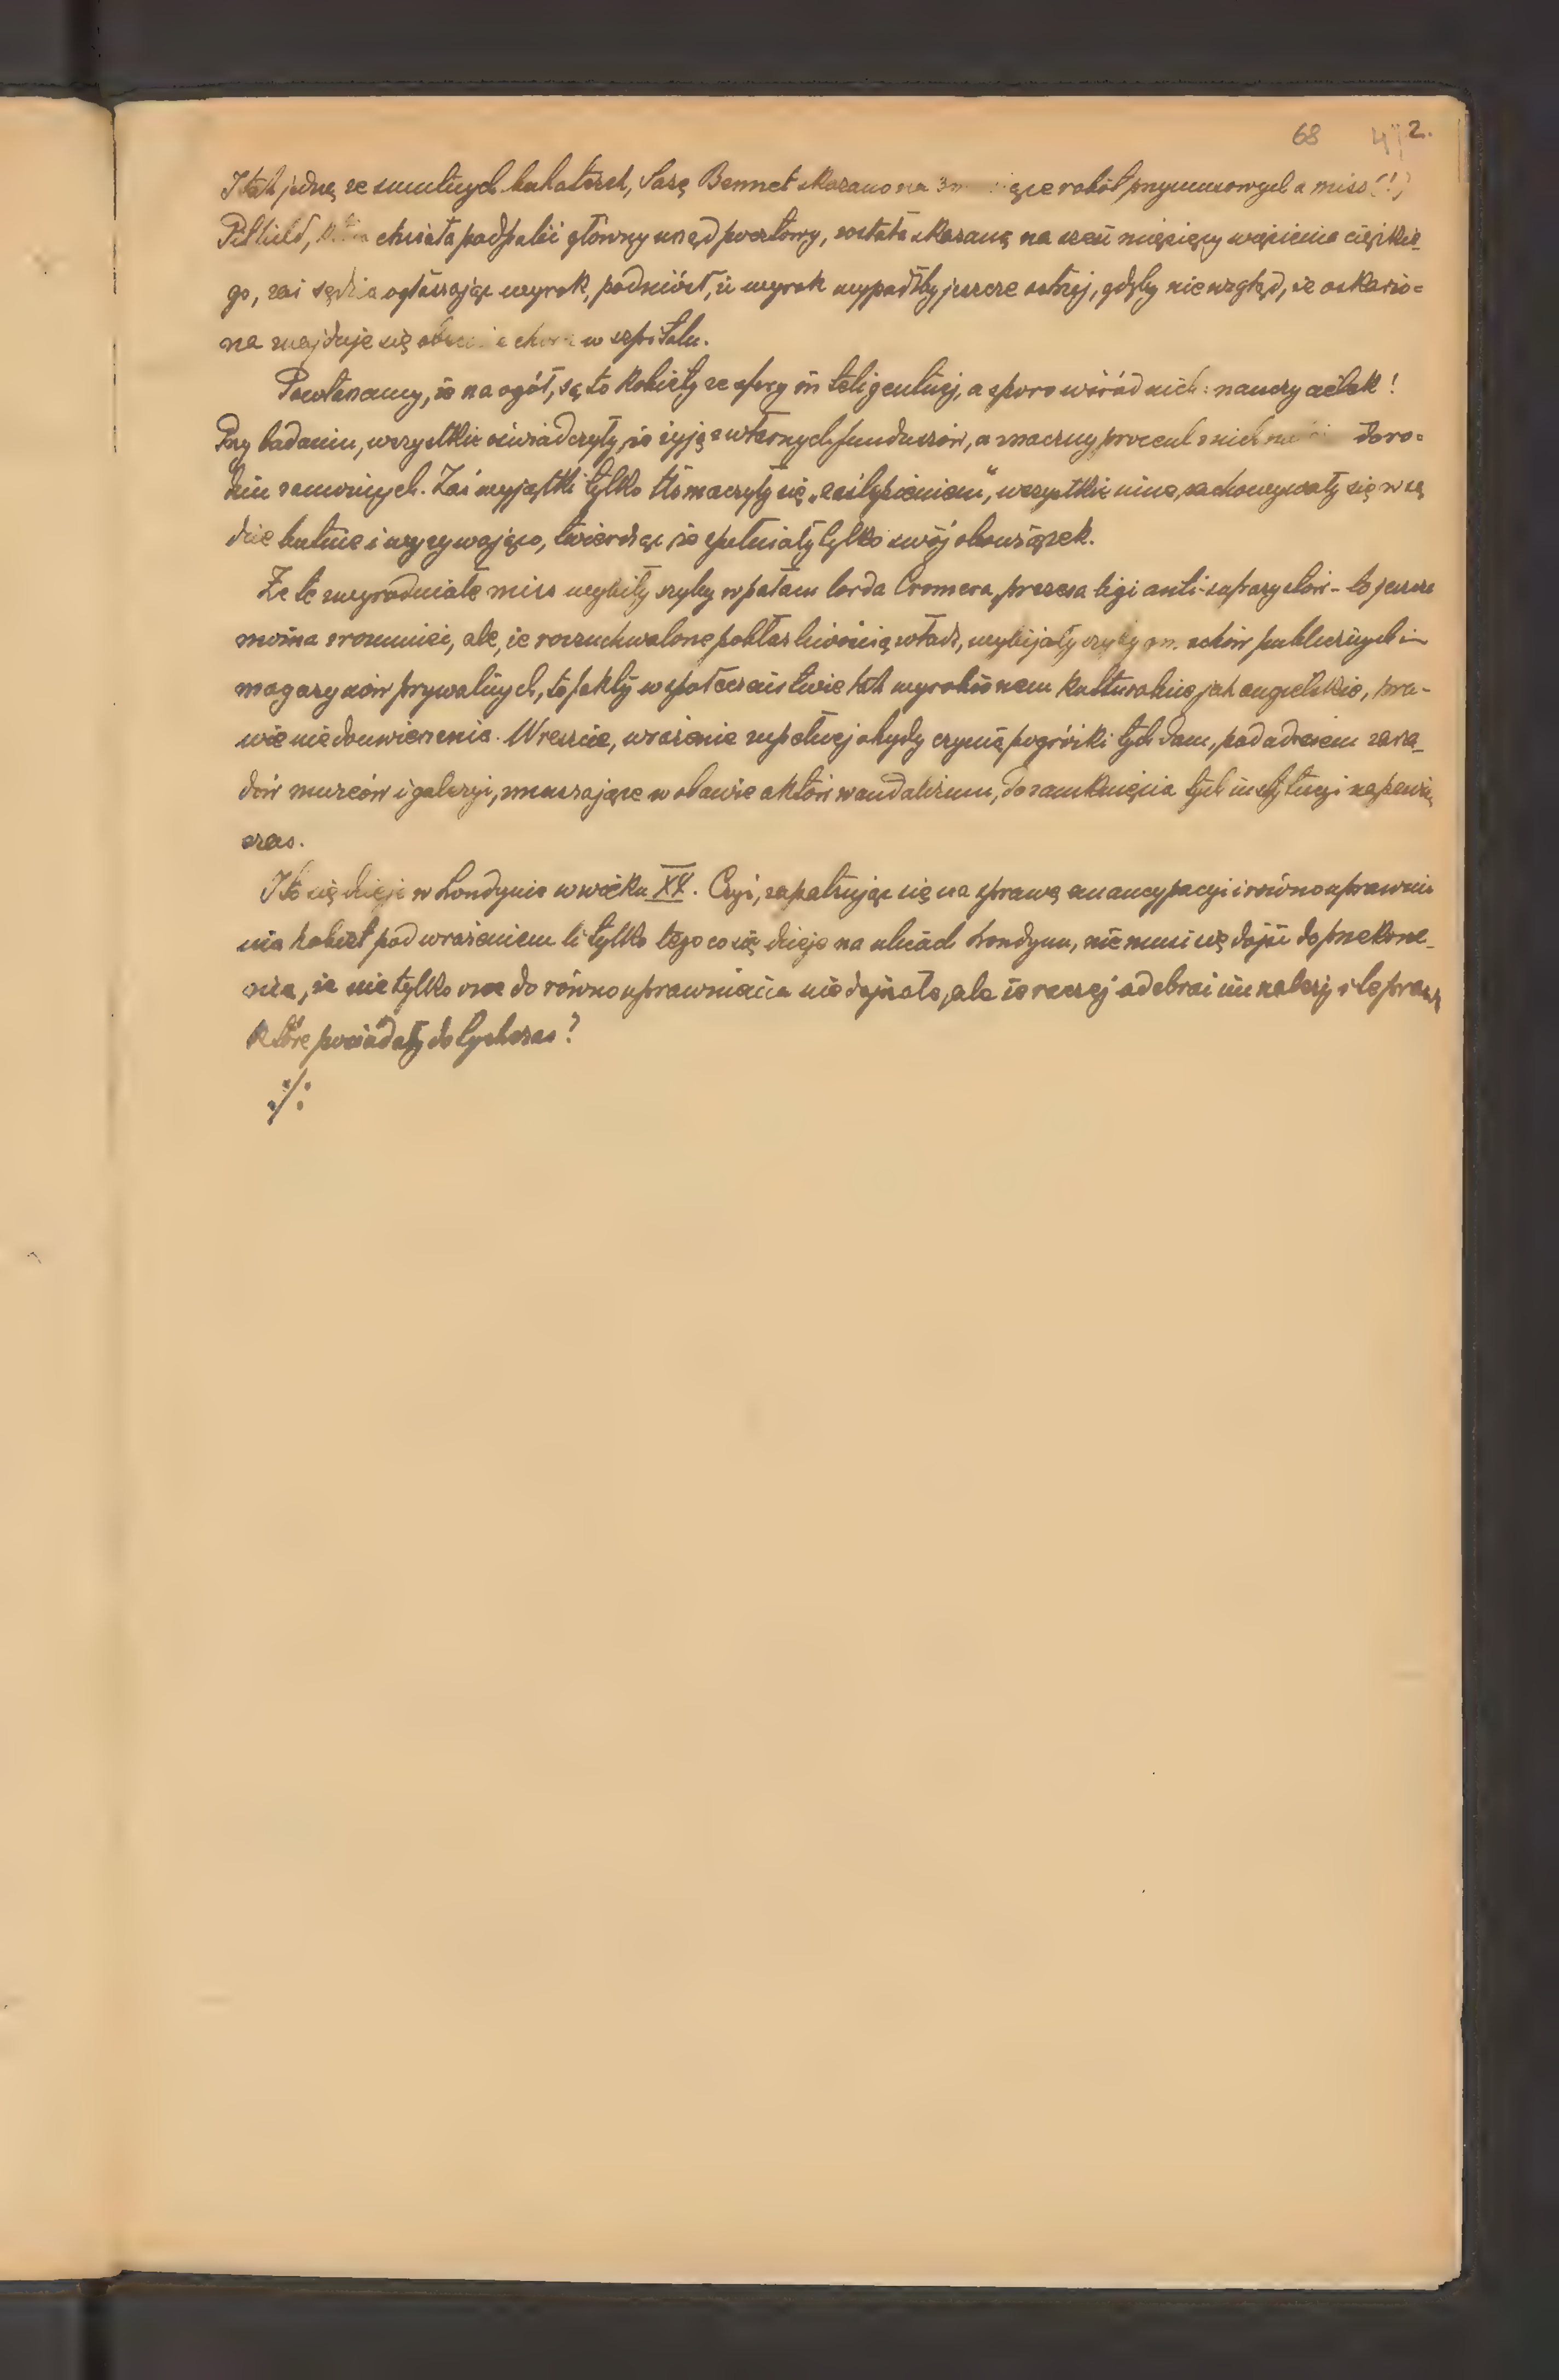 68 4 2.
I tak jedną ze smutnych bohaterek, Sarę Bennet skazano na 3 m ące robót przymusowych a miss (!)
Pitfield, która chciała podpalić główny urząd pocztowy, została skazaną na sześć miesięcy więzienia ciężkie-
go, zaś sędzia ogłaszając wyrok, podniósł, iż wyrok wypadłby jeszcze ostrzej, gdyby nie wzgląd, że oskarżo=
na znajduje się obecnie chora w szpitalu.
Powtarzamy, że na ogół, są to kobiety ze sfery inteligentnej, a sporo wśród nich: nauczycielek!
Przy badaniu, wszystkie oświadczyły, że żyją z własnych funduszów, a znaczny procent z nich należy do ro=
dzin zamożnych. Zaś wyjątki tylko tłómaczyły się „zaślepieniem", wszystkie inne, zachowywały się w są
dzie butnie i wyzywająco, twierdząc, że spełniały tylko swój obowiązek.
Że te zwyrodniałe miss wybiły szyby w pałacu lorda Cromera, prezesa ligi anti-sufrazystów - to jeszcze
można zrozumieć, ale, że rozzuchwalone pobłażliwością władz, wybijały szyby gmachów publicznych i
magazynów prywatnych, to fakty w społeczeństwie tak wyrobionem kulturalnie jak angielskie, pra-
wie nie do uwierzenia. Wreszcie, wrażenie zupełnej ohydy czynią pogróżki tych dam, pod adresem zarzą_
dów muzeów i galeryi, zmuszające w obawie aktów wandalizmu, do zamknięcia tych instytucyi na pewien
czas.
I to się dzieje w Londynie w wieku XX. Czyż, zapatrując się na sprawę emancypacyi i równouprawnie
nia kobiet pod wrażeniem li tylko tego co się dzieje na ulicach Londynu, nie musi się dojść do przekona_
nia, że nie tylko one do równouprawnienia nie dojrzały, ale że raczej odebrać im należy i te prawa,
które posiadały dotychczas?
./.